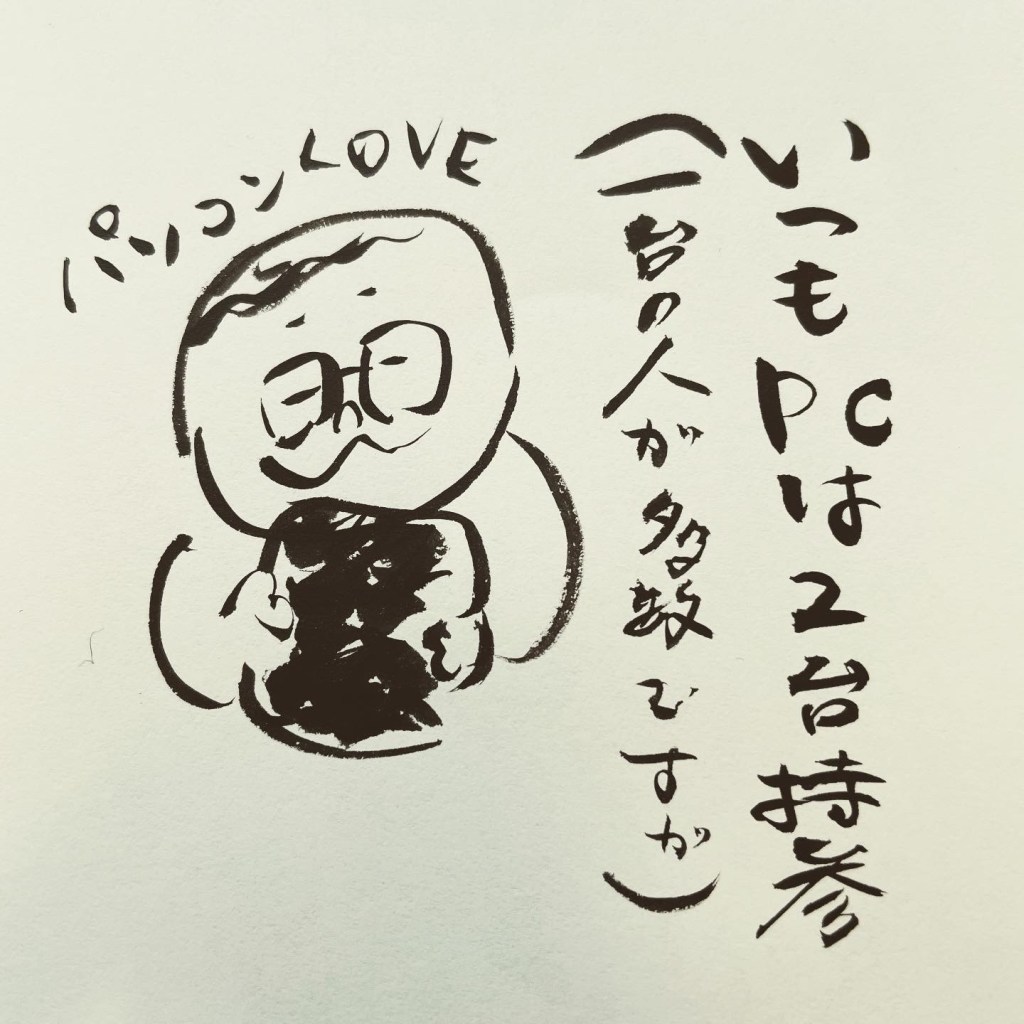 いつもPCは2台持参
（一台の人が多数ですが）
パソコンLOVE